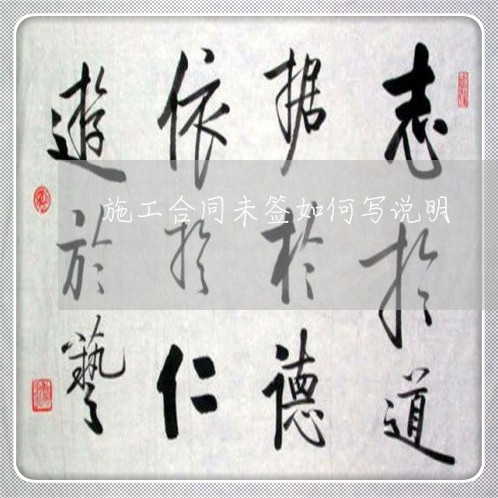 志於道
据於德
依於仁
遊於藝
施工合同未签如何写说明